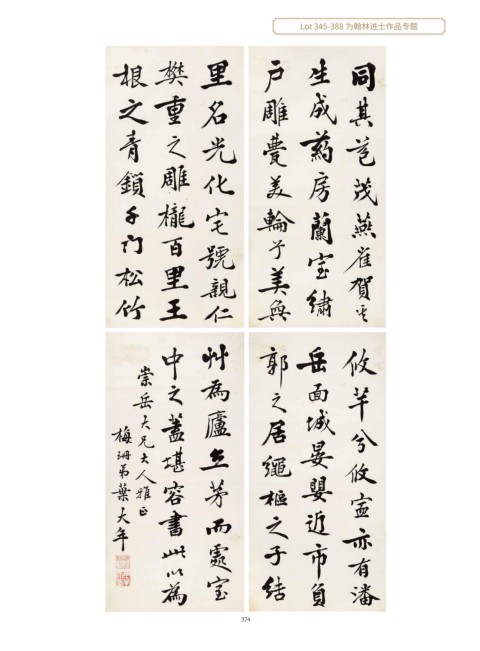 Lot 345-388 为翰林进士作品专题
同其苞茂燕雀賀其
生成葯房蘭室繡
戶雕甍美輪乎美奐
里名光化宅號親仁
樊重之雕櫳百里王
根之青鎖千門松竹
攸芊兮攸寍亦有潘
岳面城晏嬰近市負
郭之居繩樞之子結
艸為廬立茅而處室
中之蓋堪容書此以為
崇岳大兄大人雅正
梅珊弟葉大年
374